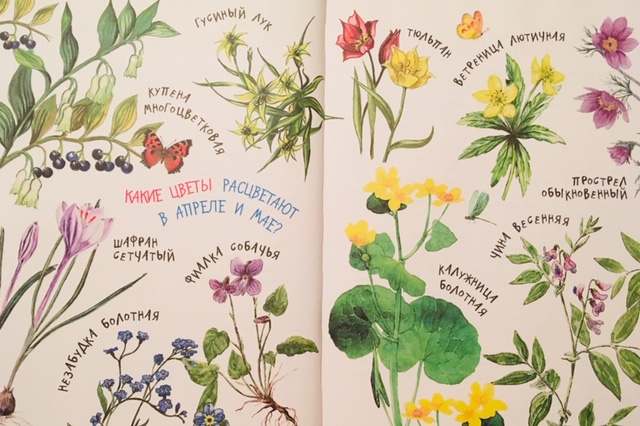 ГУСИНЫЙ ЛУК
КУПЕНА
МНОГОЦВЕТКОВАЯ
КАКИЕ ЦВЕТЫ РАСЦВЕТАЮТ
В АПРЕЛЕ И МАЕ?
ШАФРАН
СЕТЧАТЫЙ
ФИАЛКА СОБАЧЬЯ
НЕЗАБУДКА БОЛОТНАЯ
ТЮЛЬПАН
ВЕТРЕНИЦА ЛЮТИЧНАЯ
ПРОСТРЕЛ
ОБЫКНОВЕННЫЙ
ЧИНА ВЕСЕННЯЯ
КАЛУЖНИЦА
БОЛОТНАЯ